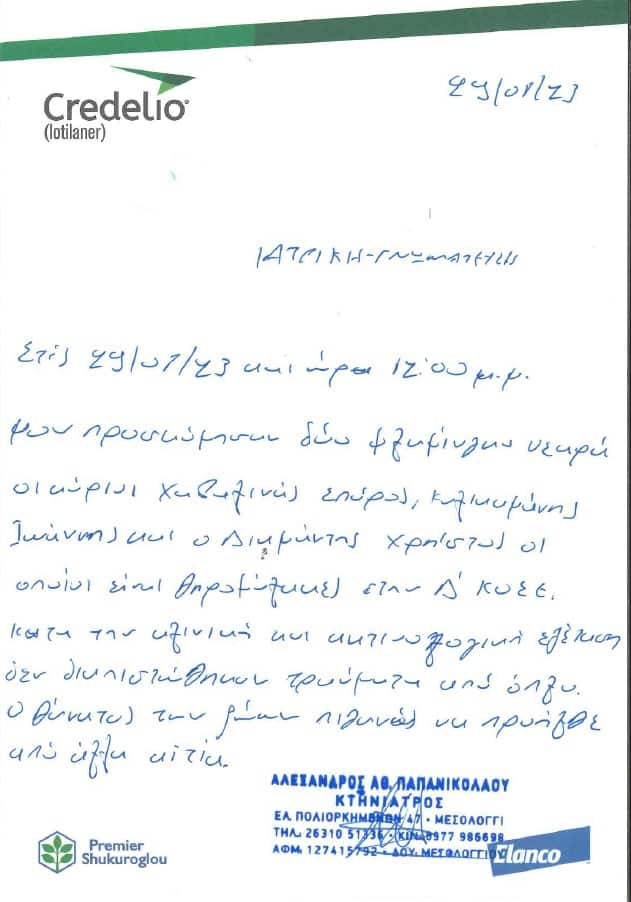 Credelio
(lotilaner)
29/01/23
ΙΑΤΡΙΚΗ-ΓΝΩΜΑΤΕΥΣΗ
Στις 29/01/23 και ώρα 12:00 μ.μ.
μου προσκόμησαν δύο φλαμίνγκο νεκρά
οι κύριοι Σπύρος,
Ιωάννης και ο Διαμάντης Χρήστος οι
οποίοι είναι θηροφύλακες στην Δ' ΚΟΣΕ.
Κατά την κλινική και ακτινολογική εξέταση
δεν διαπιστώθηκαν τραύματα από όπλο.
Ο θάνατος των ζώων πιθανώς να προήλθε
από άλλα αίτια.
ΑΛΕΞΑΝΔΡΟΣ ΑΘ. ΠΑΠΑΝΙΚΟΛΑΟΥ
ΚΤΗΝΙΑΤΡΟΣ
ΕΛ. ΠΟΛΙΟΡΚΗΜΕΝΩΝ 47 · ΜΕΣΟΛΟΓΓΙ
ΤΗΛ. 26310 51336 · ΚΙΝ. 6977 986698
ΑΦΜ. 127415792 · ΔΟΥ. ΜΕΣΟΛΟΓΓΙΟΥ
Elanco
Premier
Shukuroglou